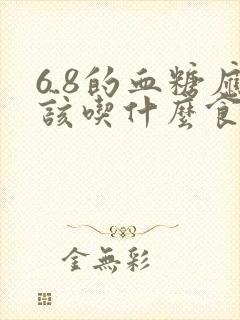 6.8的血糖應
該喫什麼食
金無彩